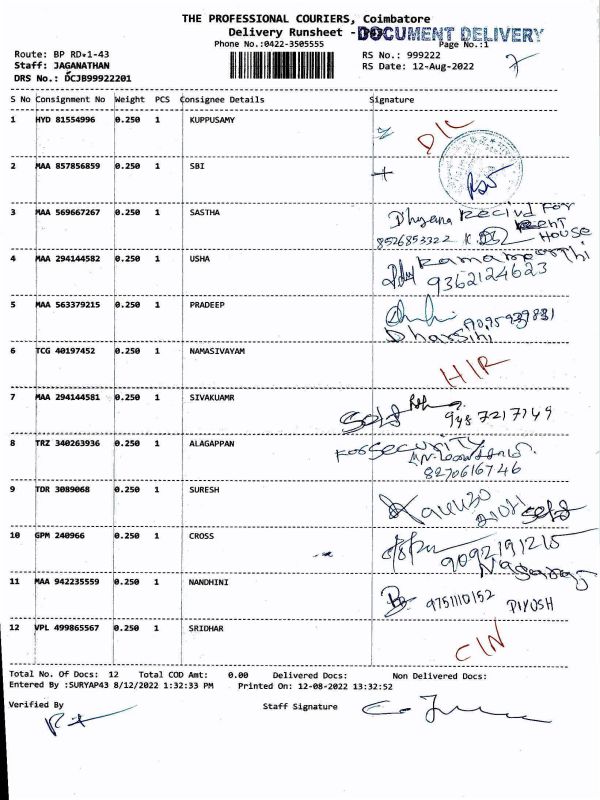 THE PROFESSIONAL COURIERS, Coimbatore
Delivery Runsheet -
DOCUMENT DELIVERY
Phone No.:0422-3505555
Page No.:1
Route: BP RD-1-43
RS No.: 999222
7
Staff: JAGANATHAN
RS Date: 12-Aug-2022
DRS No.: DCJB99922201
S No Consignment No Weight PCS Consignee Details Signature
1 HYD 81554996 0.250 1 KUPPUSAMY D/C
2 MAA 857856859 0.250 1 SBI
3 MAA 569667267 0.250 1 SASTHA Dhyana Recivd FOR
RENT
8526853322 HOUSE
4 MAA 294144582 0.250 1 USHA Ramamoorthi
9362124623
5 MAA 563379215 0.250 1 PRADEEP
Dharsini
6 TCG 40197452 0.250 1 NAMASIVAYAM H/R
7 MAA 294144581 0.250 1 SIVAKUAMR Self 9487217149
8 TRZ 340263936 0.250 1 ALAGAPPAN FOR SECURITY
8270616746
9 TDR 3089068 0.250 1 SURESH
Self
10 GPM 240966 0.250 1 CROSS 9092191215
11 MAA 942235559 0.250 1 NANDHINI 9751110152 PIYUSH
12 VPL 499865567 0.250 1 SRIDHAR C/N
Total No. Of Docs: 12 Total COD Amt: 0.00 Delivered Docs: Non Delivered Docs:
Entered By :SURYAP43 8/12/2022 1:32:33 PM Printed On: 12-08-2022 13:32:52
Verified By Staff Signature